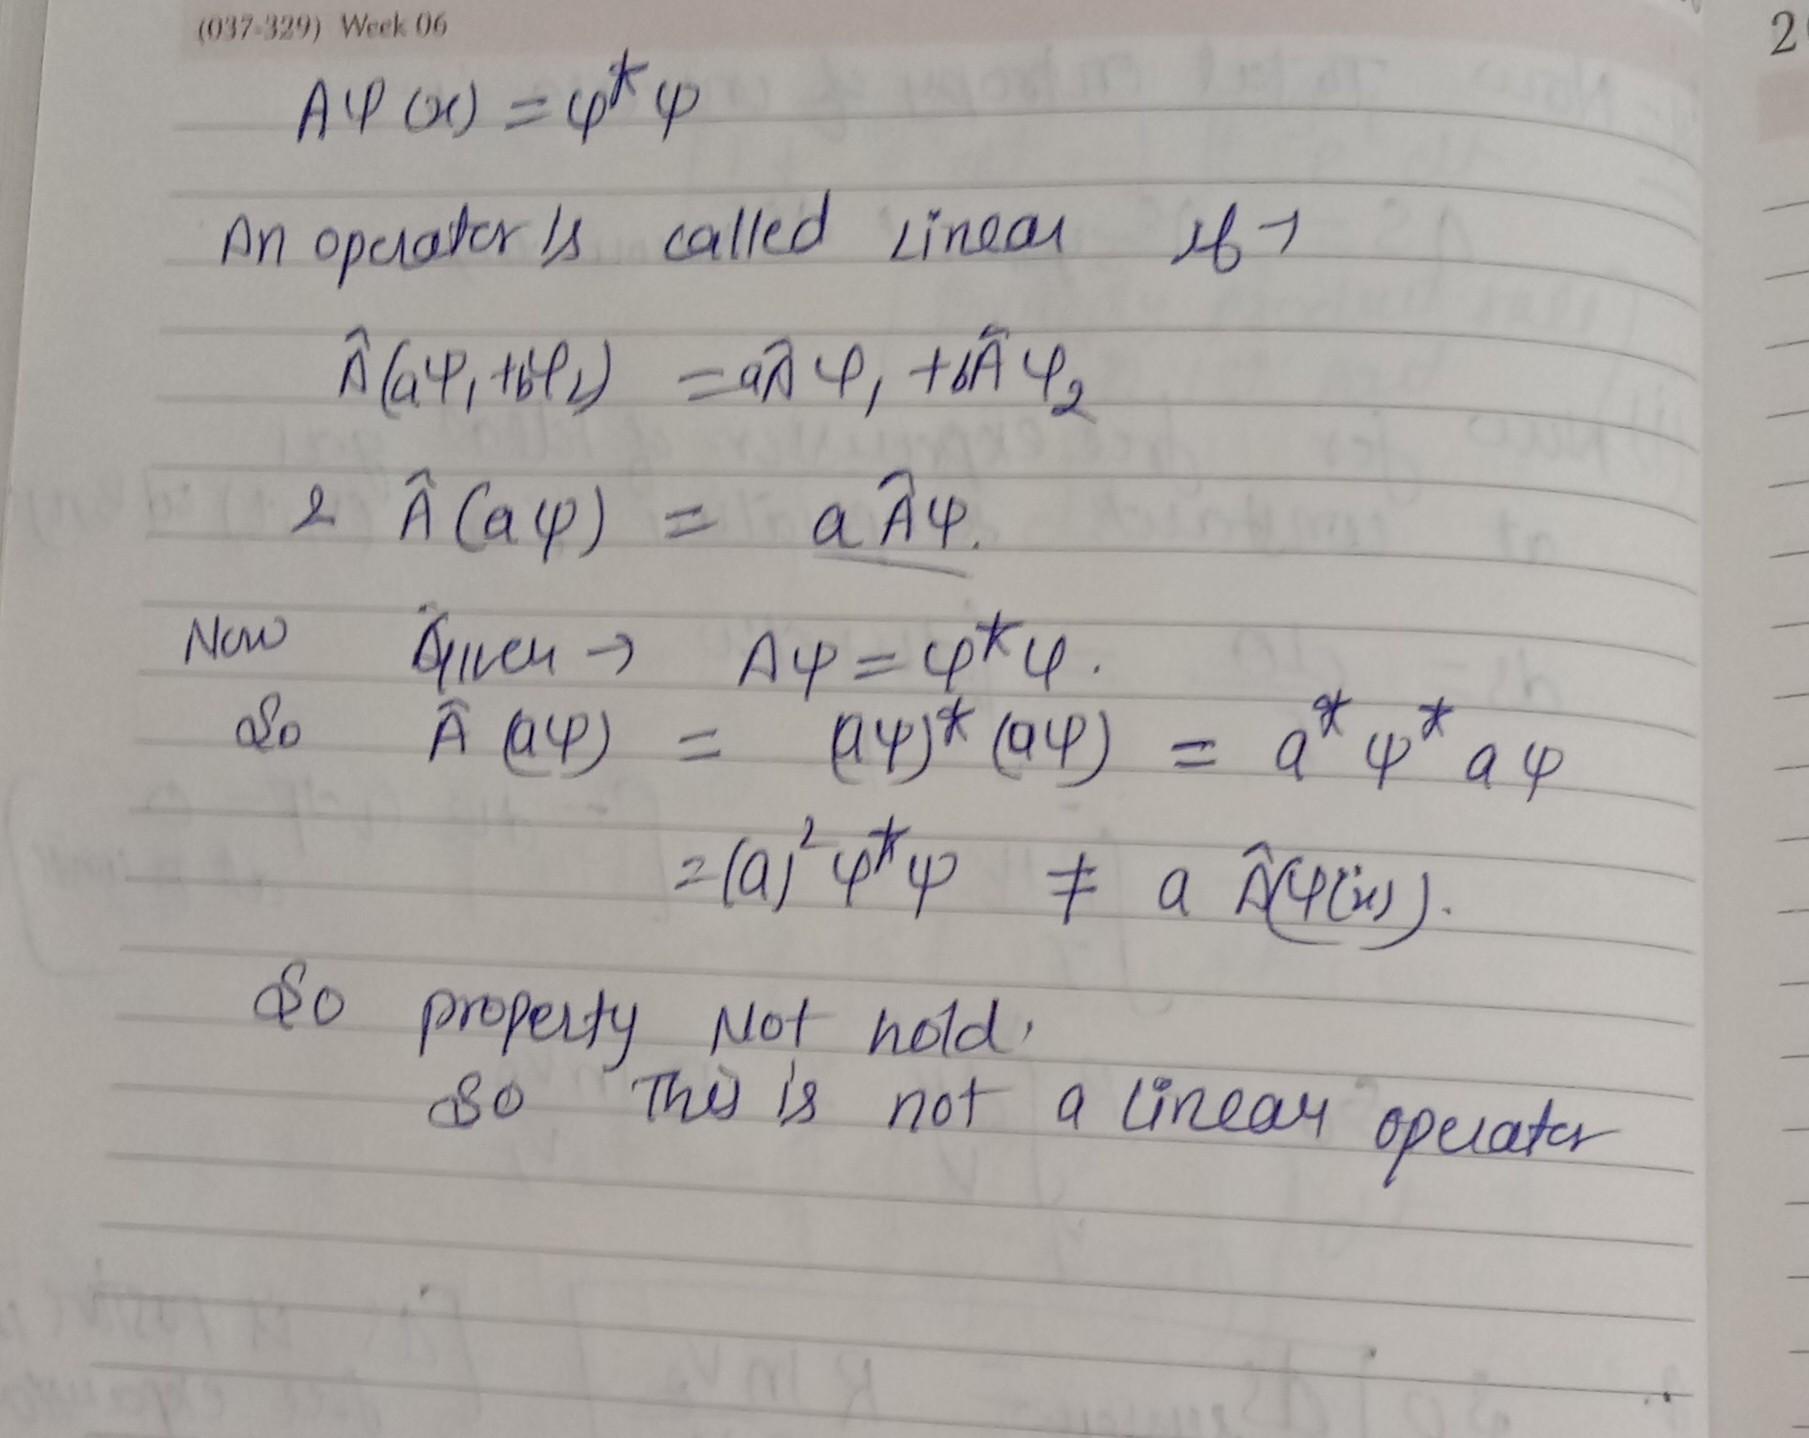 (037-329) Week 06
2
Aφ(x) = φ*φ
An operator is called Linear if →
Â(aφ₁+bφ₂) = aÂφ₁ + bÂφ₂
& Â(aφ) = aÂφ.
Now Given → Aφ = φ*φ.
So Â(aφ) = (aφ)*(aφ) = a*φ*aφ
= (a)²φ*φ ≠ a Â(φ(x)).
So property Not hold.
So This is not a linear operator